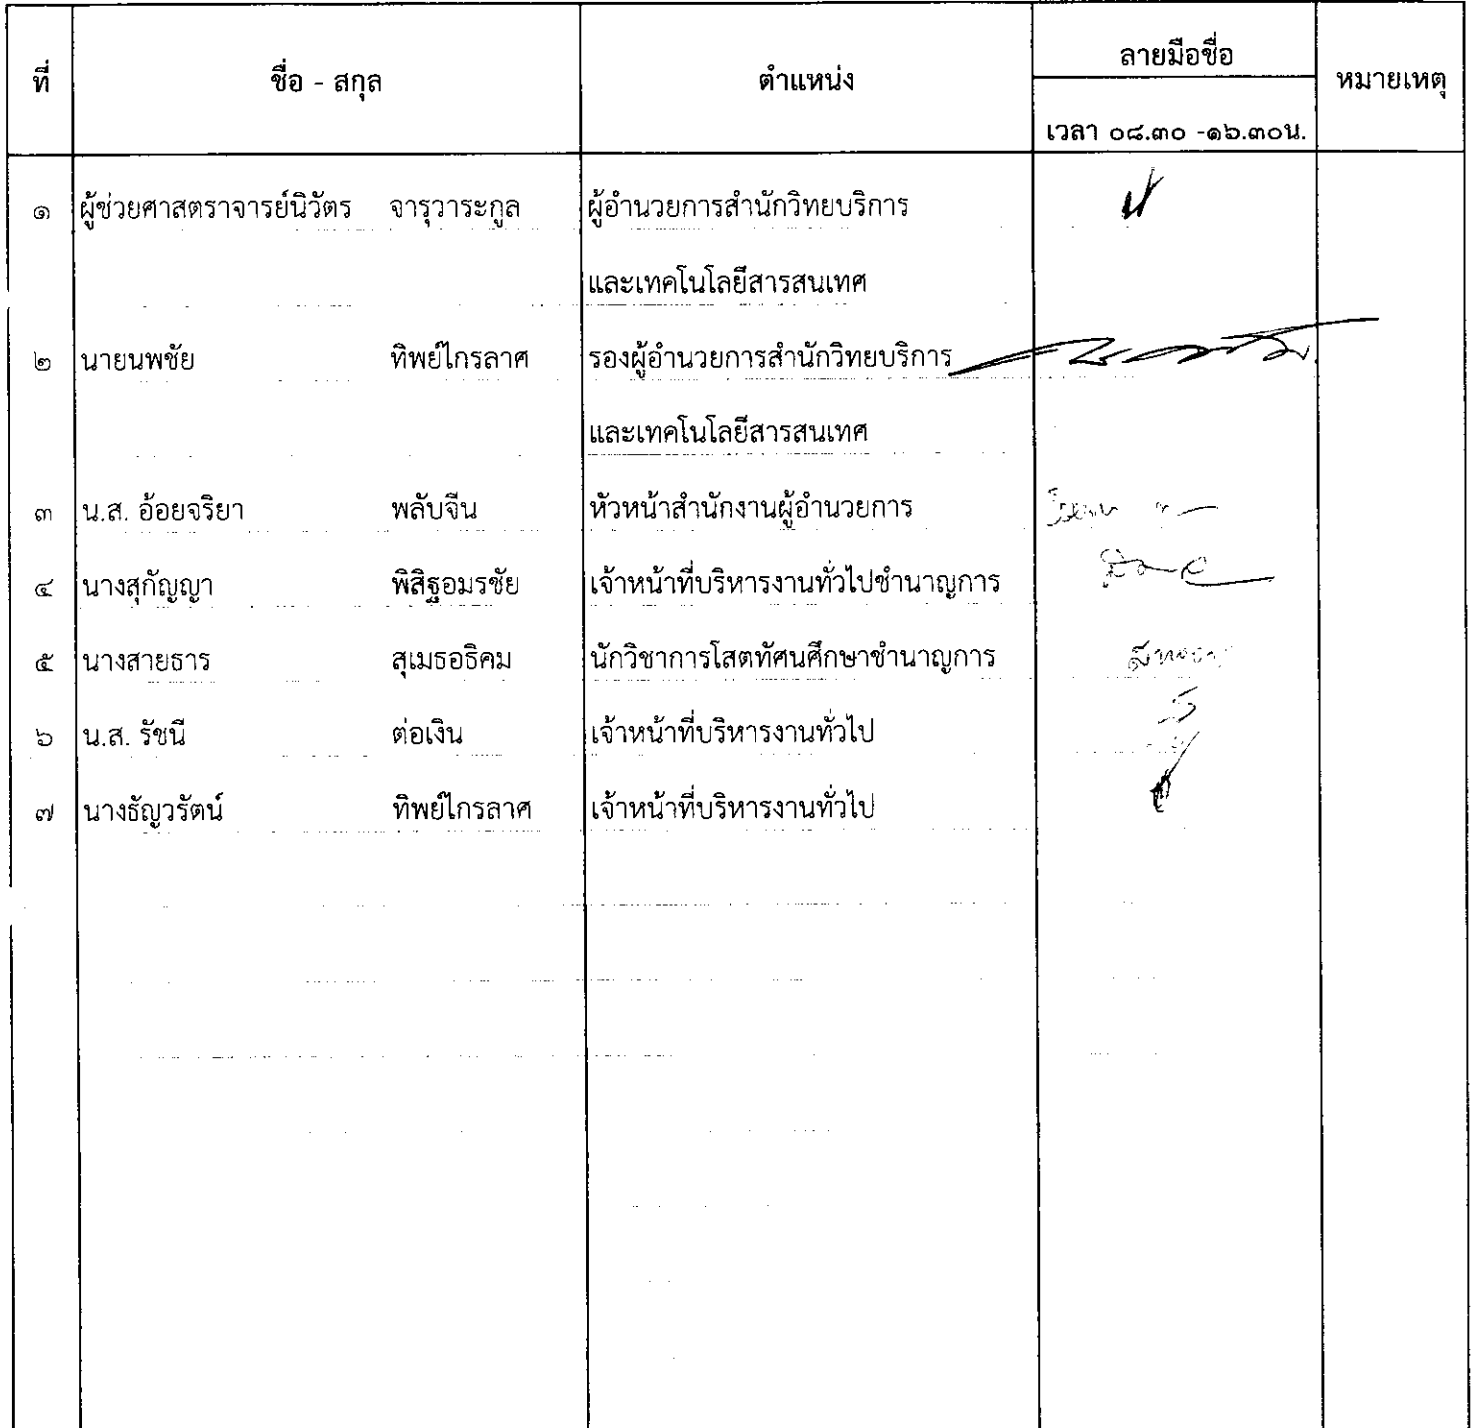 ที่ ชื่อ - สกุล ตำแหน่ง ลายมือชื่อ หมายเหตุ
เวลา ๐๘.๓๐ -๑๖.๓๐น.
๑ ผู้ช่วยศาสตราจารย์นิวัตร จารุวาระกูล ผู้อำนวยการสำนักวิทยบริการ
และเทคโนโลยีสารสนเทศ
๒ นายนพชัย ทิพย์ไกรลาศ รองผู้อำนวยการสำนักวิทยบริการ
และเทคโนโลยีสารสนเทศ
๓ น.ส. อ้อยจริยา พลับจีน หัวหน้าสำนักงานผู้อำนวยการ
๔ นางสุกัญญา พิสิฐอมรชัย เจ้าหน้าที่บริหารงานทั่วไปชำนาญการ
๕ นางสายธาร สุเมธอธิคม นักวิชาการโสตทัศนศึกษาชำนาญการ
๖ น.ส. รัชนี ต่อเงิน เจ้าหน้าที่บริหารงานทั่วไป
๗ นางธัญวรัตน์ ทิพย์ไกรลาศ เจ้าหน้าที่บริหารงานทั่วไป